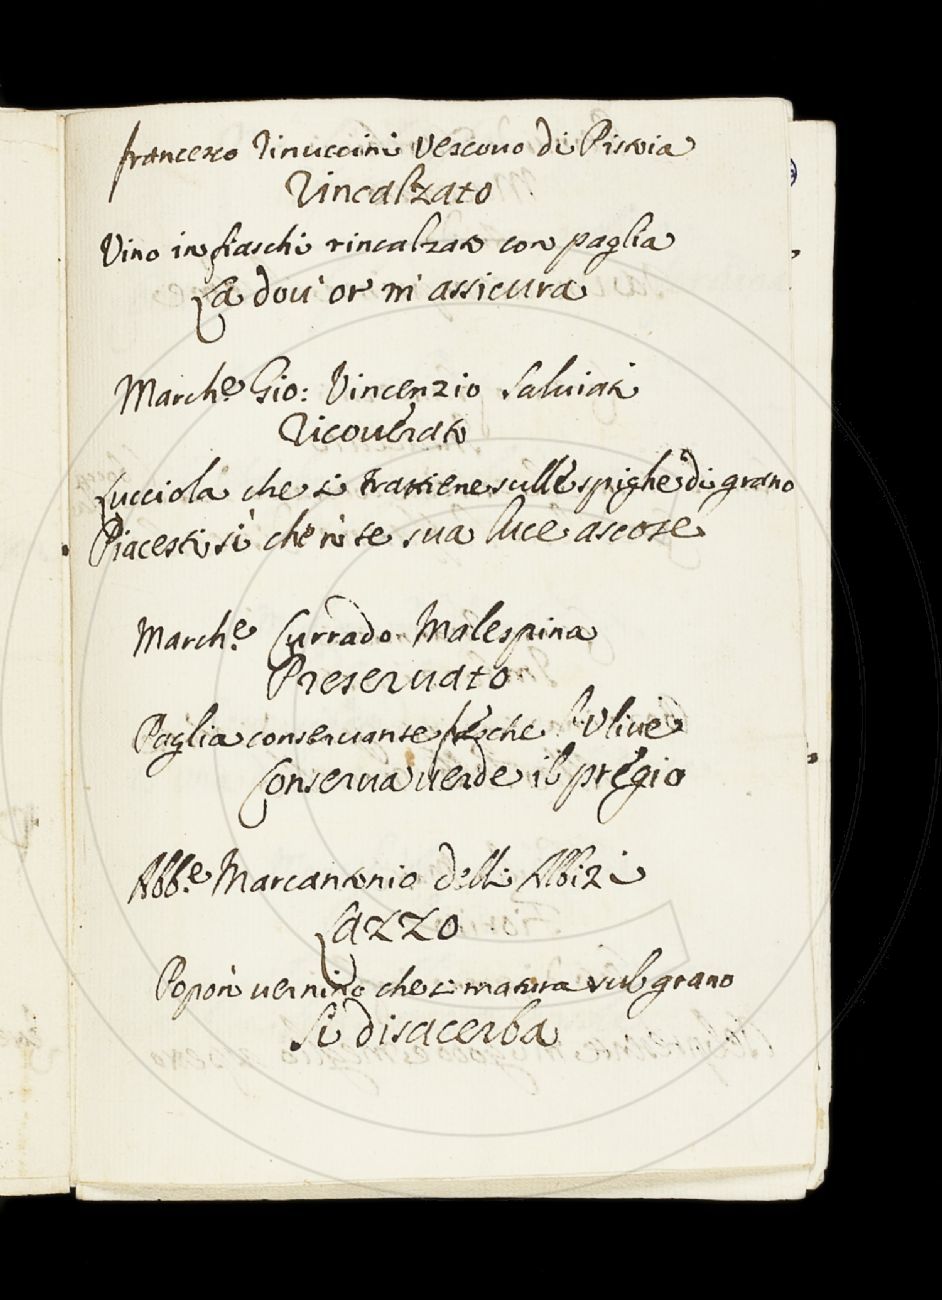 Francesco Rinuccini Vescouo di Pistoia
Rincalzato
Vino in fiaschi rincalzato con paglia
La dou' or m' assicura
March.e Gio: Vincenzio Saluiati
Ricouerato
Lucciola che si trattiene sulle spighe di grano
Piacesti sì che 'n te sua luce ascose
March.e Currado Malespina
Preseruato
Paglia conseruante fresche l' Vliue
Conserua uerde il pregio
Abb.e Marcantonio delli Albizi
Lazzo
Popon uernino che si matura sul grano
Si disacerba